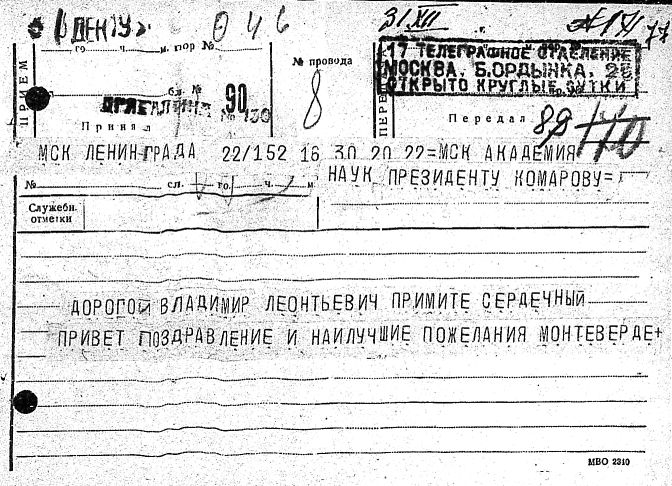 046
31/XII
го ч. м. кор №
г.
ПРИЕМ
бл. №
90
№ 130
Принял
№ провода
8
17 ТЕЛЕГРАФНОЕ ОТДЕЛЕНИЕ
МОСКВА, Б.ОРДЫНКА, 26
ОТКРЫТО КРУГЛЫЕ СУТКИ
Передал
МСК ЛЕНИНГРАДА 22/152 16 30 20 22=МСК АКАДЕМИЯ
НАУК ПРЕЗИДЕНТУ КОМАРОВУ=
№ сл. го ч. м.
Служебн.
отметки
ДОРОГОЙ ВЛАДИМИР ЛЕОНТЬЕВИЧ ПРИМИТЕ СЕРДЕЧНЫЙ
ПРИВЕТ ПОЗДРАВЛЕНИЕ И НАИЛУЧШИЕ ПОЖЕЛАНИЯ МОНТЕВЕРДЕ+
МВО 2310